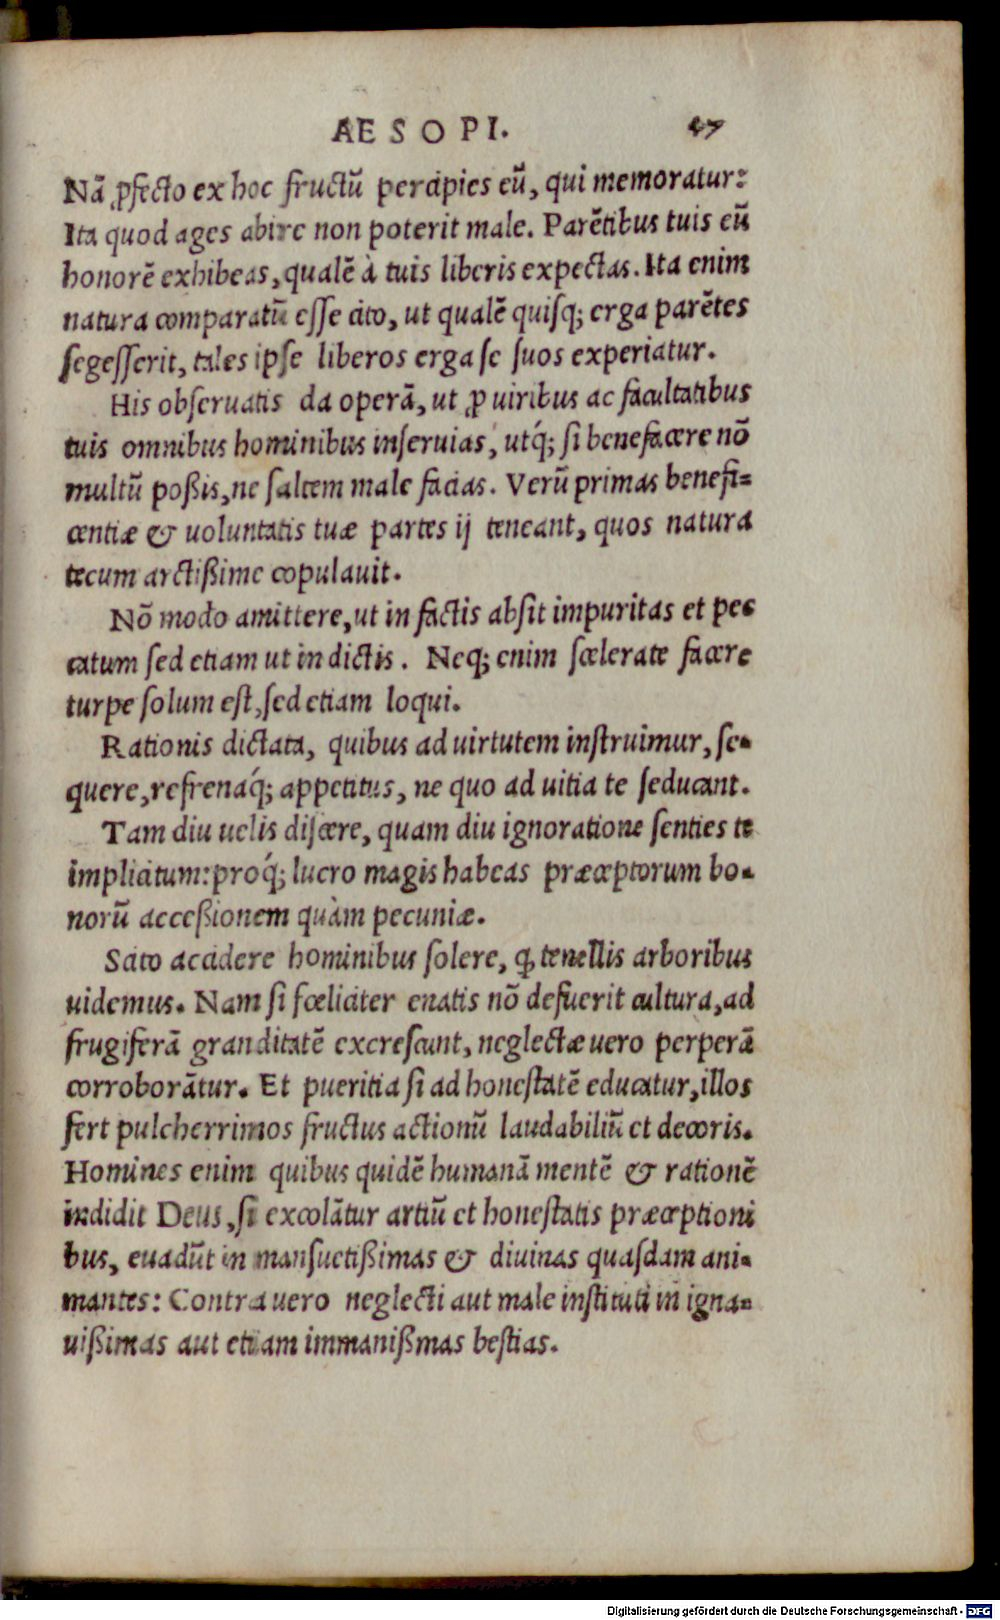 AESOPI. 47
Nã ꝓfecto ex hoc fructũ percipies eũ, qui memoratur:
Ita quod ages abire non poterit male. Parẽtibus tuis eũ
honorẽ exhibeas, qualẽ à tuis liberis expectas. Ita enim
natura comparatũ esse cito, ut qualẽ quisq; erga parẽtes
segesserit, tales ipse liberos erga se suos experiatur.
His obseruatis da operã, ut ꝓ uiribus ac facultatibus
tuis omnibus hominibus inseruias, utq́; si benefacere nõ
multũ poßis, ne saltem male facias. Verũ primas benefi-
centiæ & uoluntatis tuæ partes ij teneant, quos natura
tecum arctißime copulauit.
Nõ modo amittere, ut in factis absit impuritas et pec
catum sed etiam ut in dictis. Neq; enim scelerate facere
turpe solum est, sed etiam loqui.
Rationis dictata, quibus ad uirtutem instruimur, se-
quere, refrenaq́; appetitus, ne quo ad uitia te seducant.
Tam diu uelis discere, quam diu ignoratione senties te
implicitum: proq́; lucro magis habeas præceptorum bo-
norũ accessionem quàm pecuniæ.
Scito accidere hominibus solere, ꝙ tenellis arboribus
uidemus. Nam si fœliciter enatis nõ defuerit cultura, ad
frugiferã granditatẽ excrescunt, neglectæ uero perperã
corroborãtur. Et pueritia si ad honestatẽ educatur, illos
fert pulcherrimos fructus actionũ laudabiliũ et decoris.
Homines enim quibus quidẽ humanã mentẽ & rationẽ
indidit Deus, si excolãtur artiũ et honestatis præceptioni
bus, euadũt in mansuetißimas & diuinas quasdam ani-
mantes: Contra uero neglecti aut male instituti in igna-
uißimas aut etiam immanißmas bestias.
Digitalisierung gefördert durch die Deutsche Forschungsgemeinschaft - DFG